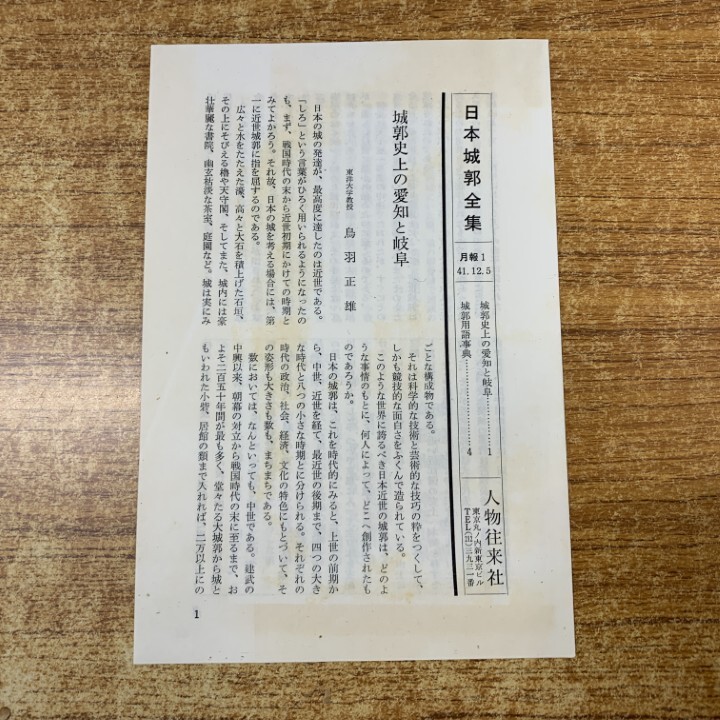 日本城郭全集
月報1
41.12.5
城郭史上の愛知と岐阜…………1
城郭用語事典…………………4
人物往来社
東京丸ノ内新東京ビル
TEL(212)三九二一番
城郭史上の愛知と岐阜
東洋大学教授 鳥羽正雄
日本の城の発達が、最高度に達したのは近世である。
「しろ」という言葉がひろく用いられるようになったの
も、まず、戦国時代の末から近世初期にかけての時期と
みてよかろう。それ故、日本の城を考える場合には、第
一に近世城郭に指を屈するのである。
広々と水をたたえた濠、高々と大石を積上げた石垣、
その上にそびえる櫓や天守閣、そしてまた、城内には豪
壮華麗な書院、幽玄枯淡な茶室、庭園など。城は実にみ
ごとな構成物である。
それは科学的な技術と芸術的な技巧の粋をつくして、
しかも競技的な面白さをふくんで造られている。
このような世界に誇るべき日本近世の城郭は、どのよ
うな事情のもとに、何人によって、どこへ創作されたも
のであろうか。
日本の城郭は、これを時代的にみると、上世の前期か
ら、中世、近世を経て、最近世の後期まで、四つの大き
な時代と八つの小さな時期とに分けられる。それぞれの
時代の政治、社会、経済、文化の特色にもとづいて、そ
の姿形も大きさも数も、まちまちである。
数においては、なんといっても、中世である。建武の
中興以来、朝幕の対立から戦国時代の末に至るまで、お
よそ二百五十年間が最も多く、堂々たる大城郭から城と
もいわれた小砦、居館の類まで入れれば、二万以上にの
1